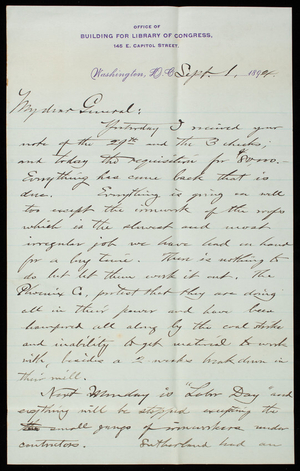 OFFICE OF
BUILDING FOR LIBRARY OF CONGRESS,
145 E. CAPITOL STREET.
Washington, D.C. Sept. 1, 1894.
My dear General:
Yesterday I received your
note of the 29th and the 3 checks;
and today the requisition for $80000.
Everything has come back that is
due. Everything is going on well
too except the ironwork of the roofs
which is the slowest and most
irregular job we have had on hand
for a long time. There is nothing to
do but let them work it out. The
Phoenix Co. protest that they are doing
all in their power and have been
hampered all along by the coal strike
and inability to get material to work
with, besides a 2 weeks breakdown in
their mill.
Next Monday is "Labor Day" and
everything will be stopped excepting the
small gangs of ironworkers under
contractors. Sutherland had an